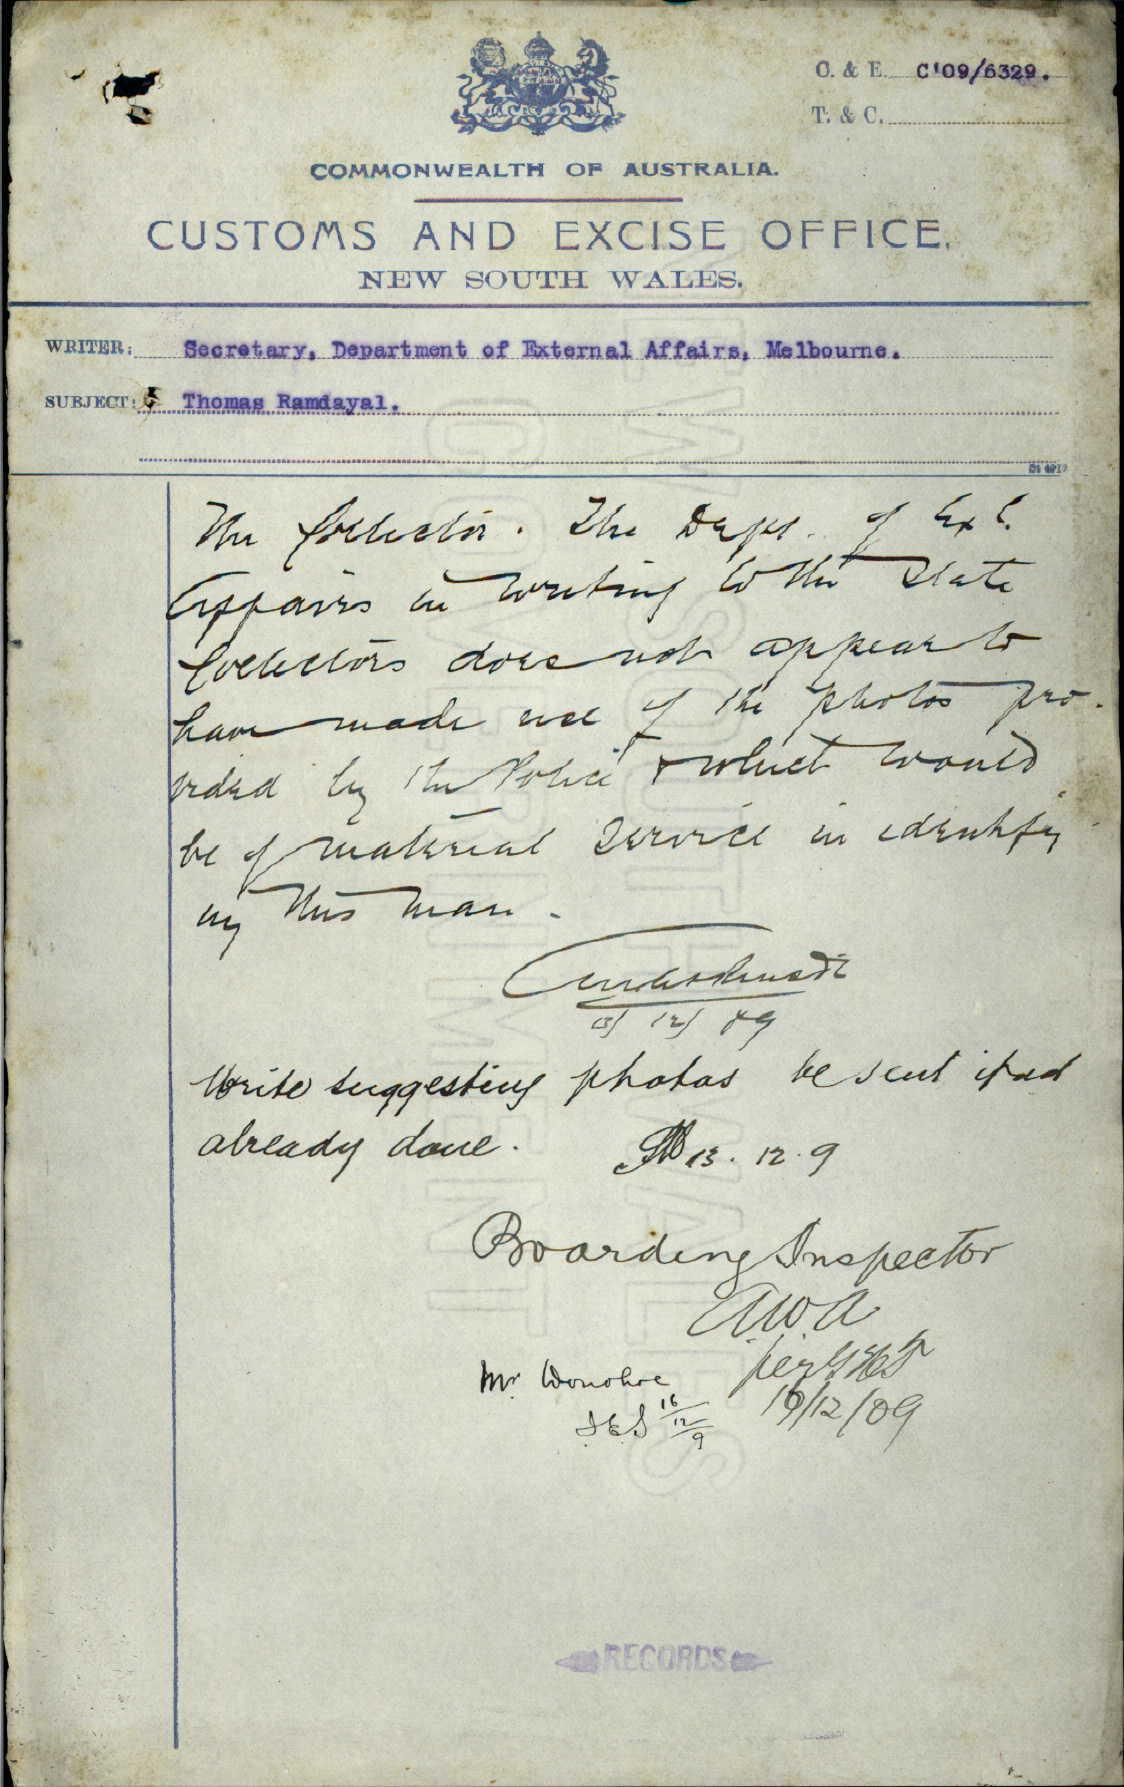 C. & E. C'09/6329.
T. & C.
COMMONWEALTH OF AUSTRALIA.
CUSTOMS AND EXCISE OFFICE,
NEW SOUTH WALES.
WRITER: Secretary, Department of External Affairs, Melbourne.
SUBJECT: Thomas Ramdayal.
The Collector. The Dept. of Ext.
Affairs in writing to the State
Collectors does not appear to
have made use of the photos pro-
vided by the Police & which would
be of material service in identify
ing this man.
13/12/09
Write suggesting photos be sent if not
already done. 13.12.9
Boarding Inspector
AWA
per
16/12/09
Mr Donohoe
16/12/9
RECORDS
NEW SOUTH WALES
GOVERNMENT